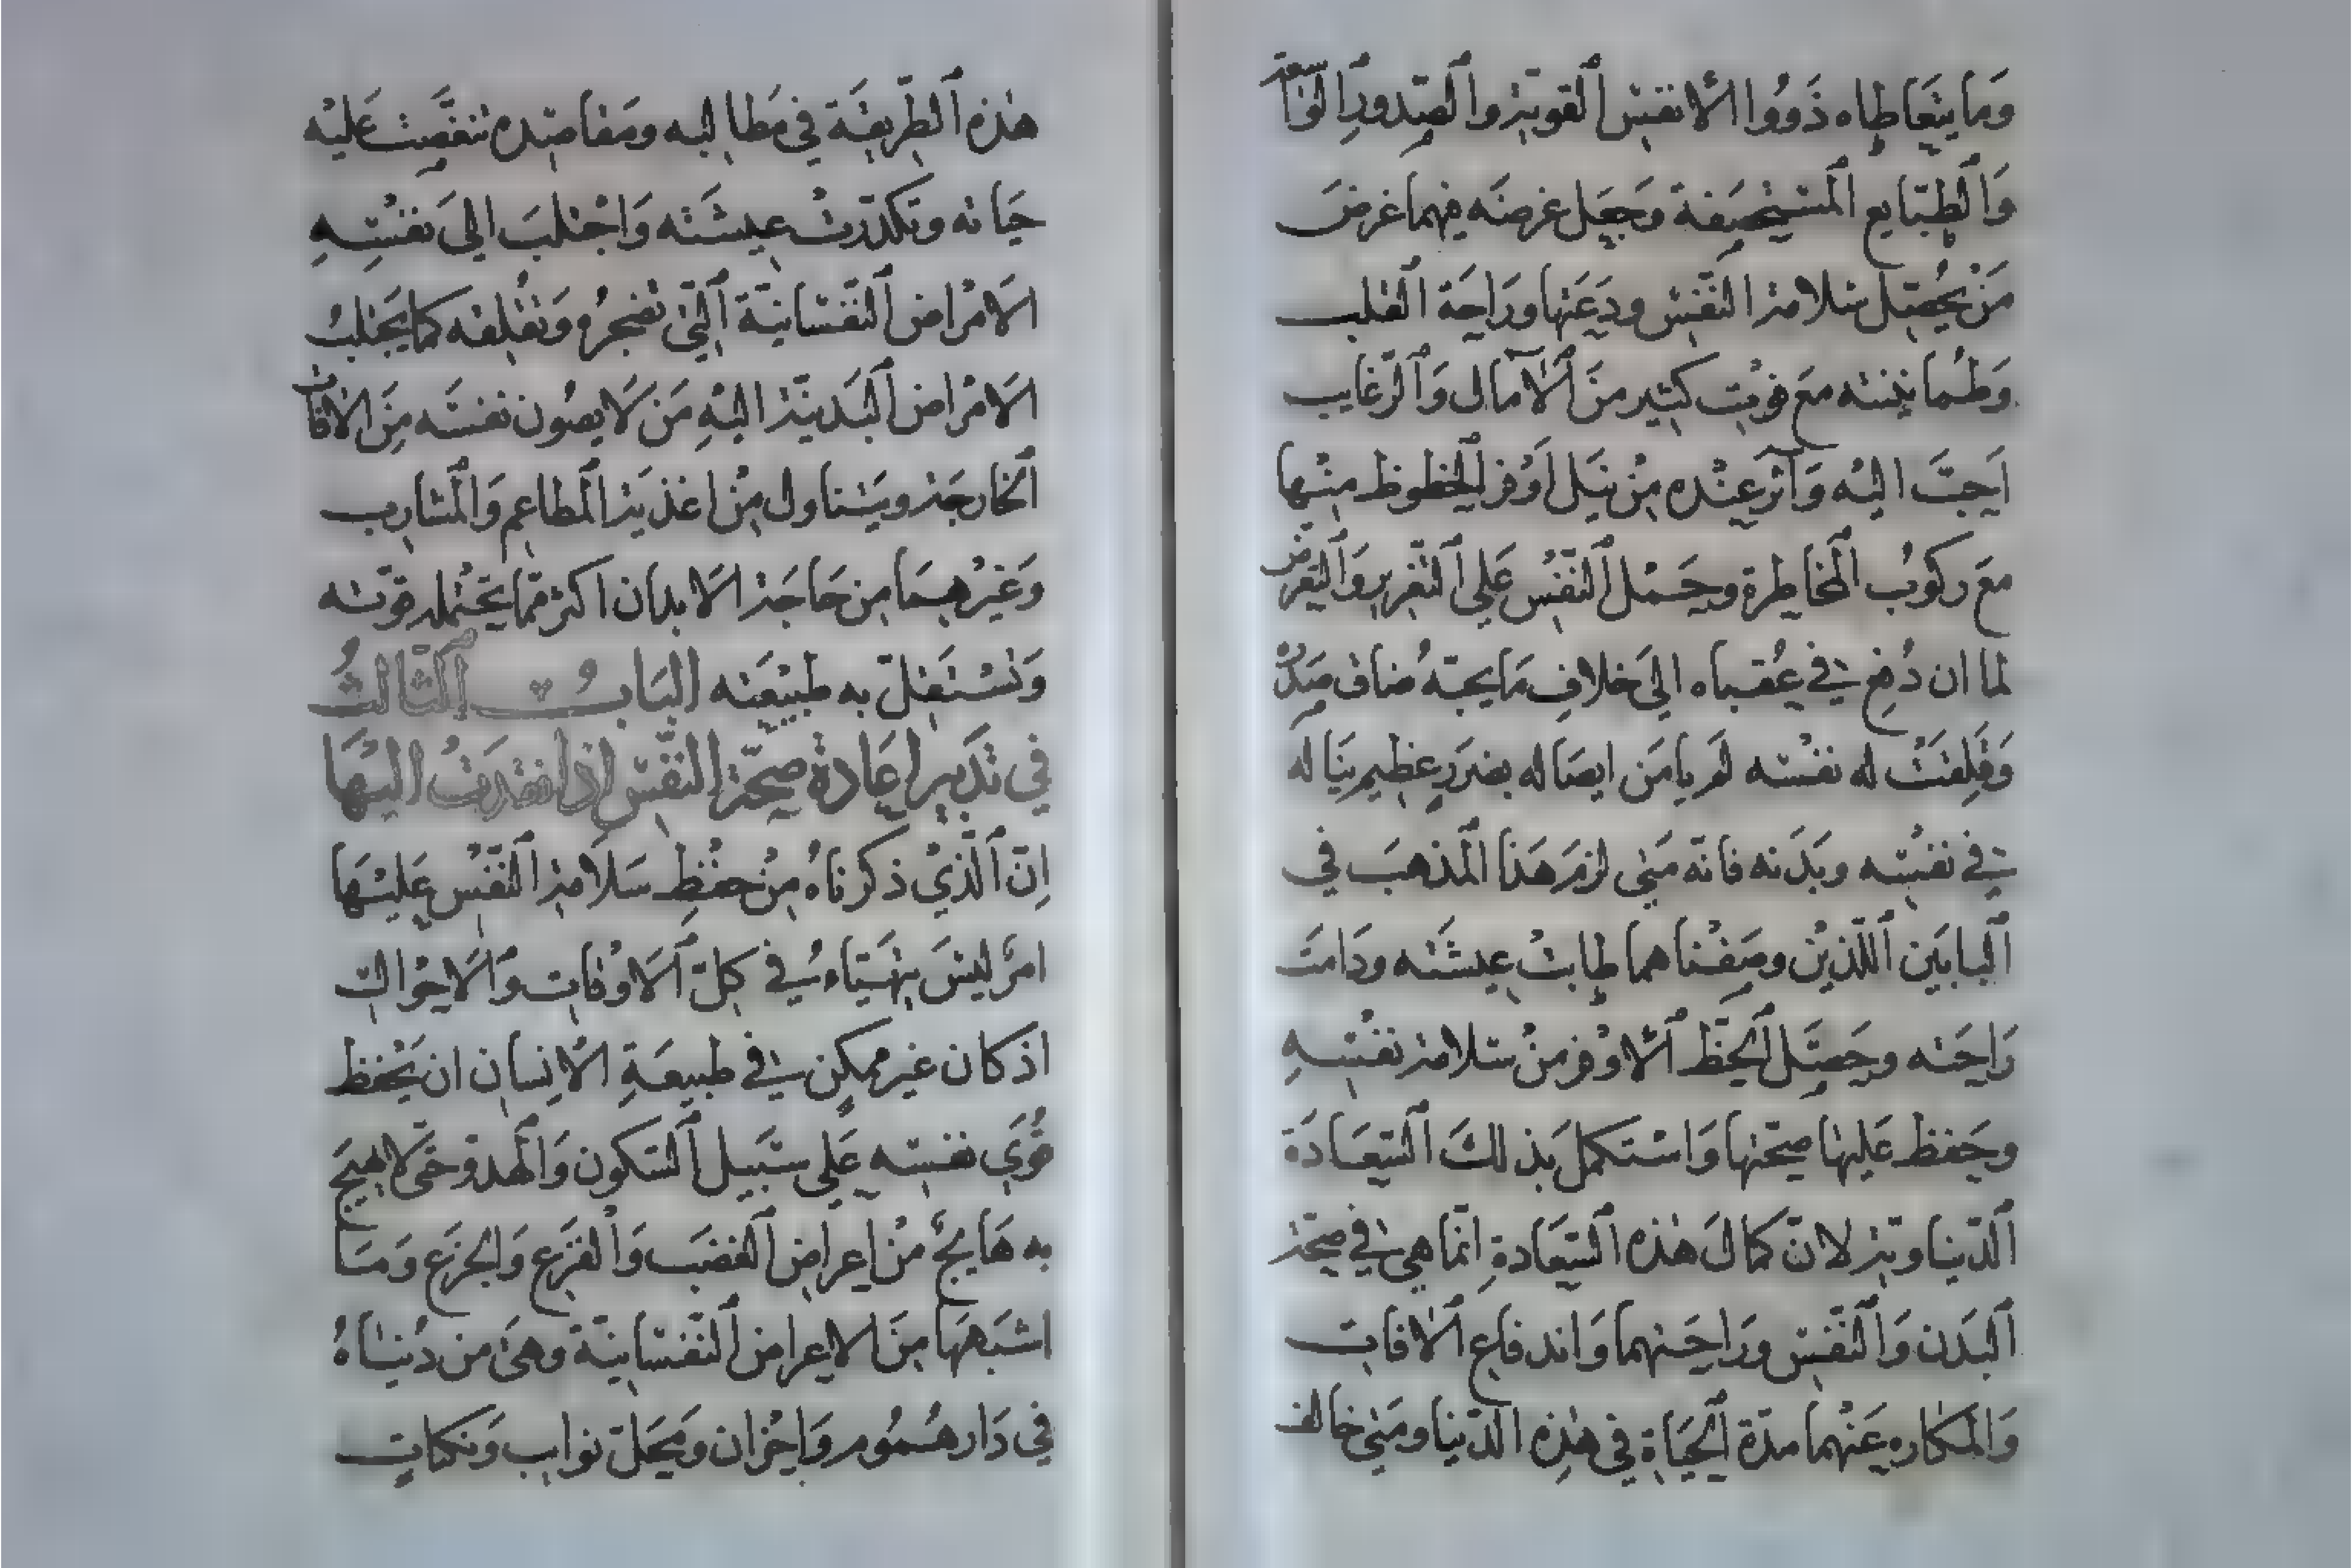 وَما يتعَاطاه ذَوُوا الأنفس القوية والصّدورِ الواسعة
وَالطبَايع المستحصَفة وَجعَل غرضَه فيهما غرضَ
مَنْ يحُصّل سَلامة النّفس ودَعَتها ورَاحَة القلب
وَطُمانينته معَ فوت كثير منَ الآمال وَالرّغايب
اَحبَّ اليْه وَآثرَ عنْده مِنْ نيَل اَوْفر الحظوظ منْها
معَ ركوُب المخاطرة وحَمْل النّفْس عَلى التّغرير وَالتعرّض
لما ان دُفع في عُقباه الىَ خلافِ مَا يحبّهُ ضاق صَدرُه
وَقَلِقتْ له نفسْه لمَ يامَن ايصَاله بضررٍ عظيم ينَاله
في نفسْه وبَدَنه فانّه مَتى لزمَ هَذا المْذهبَ في
البابَين اللّذيْن وصَفْناهما طابتْ عيشَته ودَامَت
رَاحَته وحَصّل الحَظّ الأوْفر منْ سَلامة نفسْهِ
وحَفظ عَليها صحّتها وَاسْتكمل بَذلكَ السّعَادَة
الدّنياوّية لانّ كمالَ هٰذه السّعَادةِ انّما هىَ في صحّة
البَدن وَالنّفْس ورَاحَتهما وَاندفاع الآفات
وَالمكاره عَنْهما مدّة الحَيَاة في هٰذِه الدّنيا ومَتى خالف
هٰذه الطّريقَة في مَطالبه ومَقاصده تنغّصَت عَليْه
حيَاته وتكدّرتْ عيشَته وَاجْتلبَ الىَ نفسْهِ
الامْراض النّفسَانيّة التّى تضْجرُه وَتقْلقه كما يَجتلبُ
الامْراض البَدنيّة اليْهِ مَن لَا يصُون نفسَه مِنَ الآفات
الخارجَة ويَتناول مِنْ اغذيَة المْطاعم وَالمْشارب
وَغيْرهمَا من حَاجَة الابدان اكثر مّمَا يحَتْمله قوّته
وَتسْتَقلّ به طبيْعَته البَابُ الثّالثُ
في تدَبير اعَادة صحّة النّفس اذا فقدَتْ اليْهَا
اِنّ الذّيْ ذكرناهُ مِنْ حفْظِ سَلَامة النّفْس عَليْهَا
امرٌ ليْسَ يتهَيّاء في كلّ الاوْقات وَالاحْوال
اذ كان غير ممكن في طبيعَةِ الْانسان ان يَحْفظ
قُوَي نفسْه عَلى سَبيل السّكون وَالهْدوّ حَتّى لا يهيجَ
به هَايجٌ منْ اعراض الغضَب وَالفْزَع وَالجزَع وَمَا
اشبَهَهَا مِنَ الاعراض النّفسَانيّة وهىَ من دُنياهُ
في دَار هُمُوم وَاحْزان ومَحَلّ نوايب وَنكبات